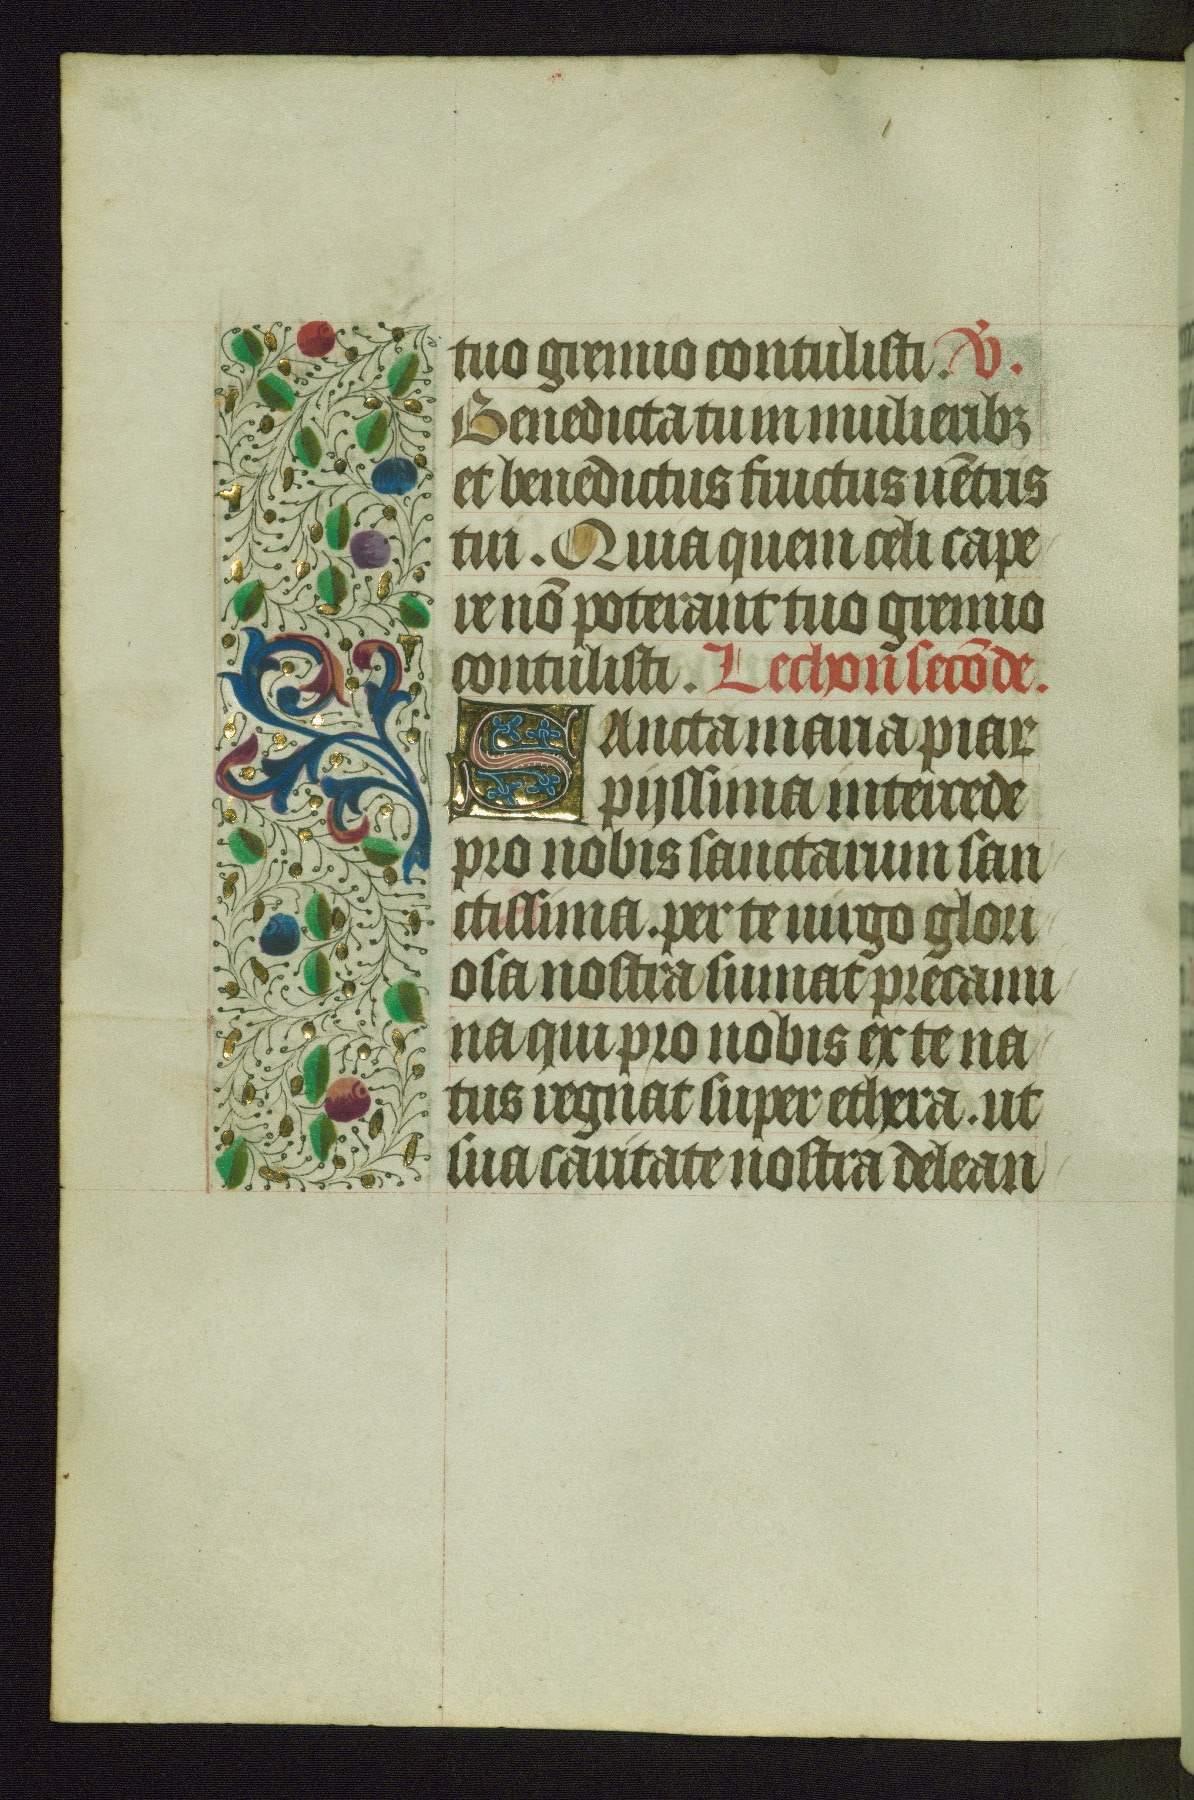 tuo gremio contulisti. V.
Benedicta tu in mulieribꝫ
et benedictus fructus uētris
tui. Quia quem celi cape
re nō poterant tuo gremio
contulisti. Lechon secōde.
SAncta maria piaꝝ
pijssima intercede
pro nobis sanctarum san
ctissima. per te uirgo glori
osa nostra sumat precami
na qui pro nobis ex te na
tus regnat super ethera. ut
sua caritate nostra delean